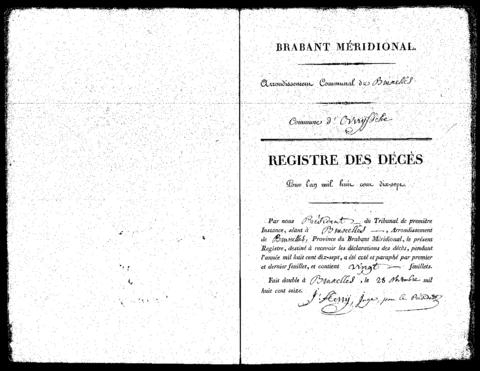 BRABANT MÉRIDIONAL.
Arrondissement Communal de Bruxelles
Commune d'Overyssche
REGISTRE DES DÉCÈS
Pour l'an mil huit cent dix-sept.
Par nous Président du Tribunal de première
Instance, séant à Bruxelles, Arrondissement
de Bruxelles, Province du Brabant Méridional, le présent
Registre, destiné à recevoir les déclarations des décès, pendant
l'année mil huit cent dix-sept, a été coté et paraphé par premier
et dernier feuillet, et contient vingt feuillets.
Fait double à Bruxelles, le 28 mil
huit cent seize.
juge, pour le Président